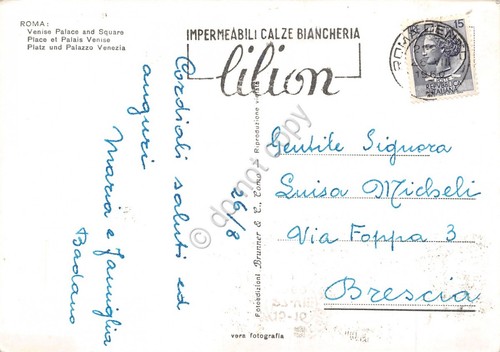 ROMA:
Venise Palace and Square
Place et Palais Venise
Platz und Palazzo Venezia
IMPERMEABILI CALZE BIANCHERIA
lilion
ROMA CENTRO
15
REPVBBLICA
ITALIANA
Cordiali saluti ed
auguri
Maria e famiglia
Badano
26/8
Fotoedizioni Brunner & C., Como - Riproduzione vietata
Gentile Signora
Luisa Micheli
Via Foppa 3
Brescia
vera fotografia
delcampocopy